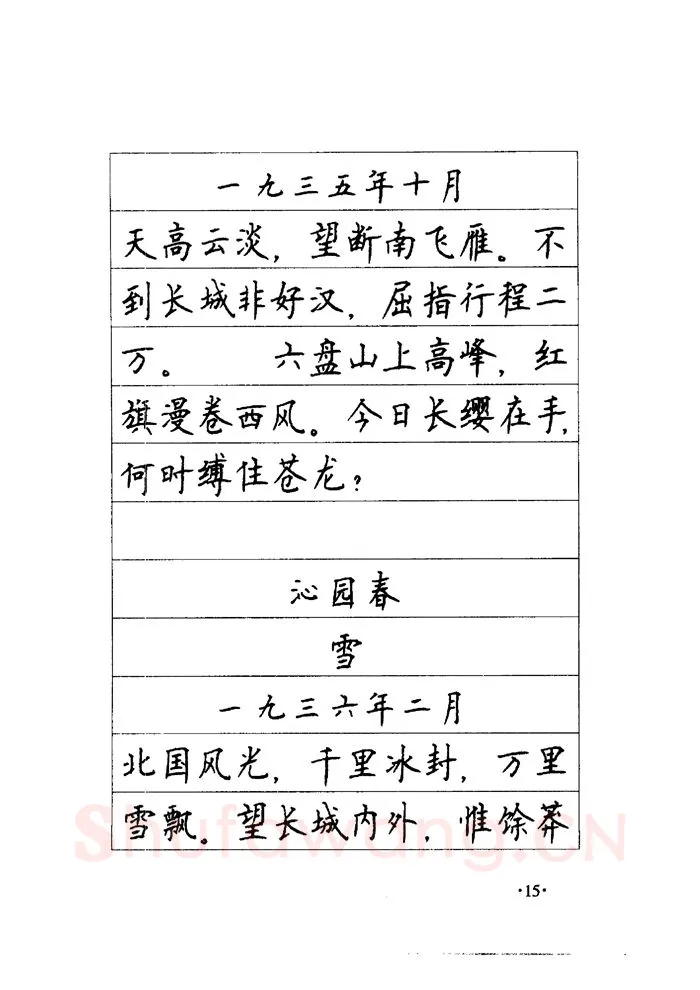 一九三五年十月
天高云淡，望断南飞雁。不
到长城非好汉，屈指行程二
万。 六盘山上高峰，红
旗漫卷西风。今日长缨在手，
何时缚住苍龙？
沁园春
雪
一九三六年二月
北国风光，千里冰封，万里
雪飘。望长城内外，惟馀莽
Shufawang.CN
·15·